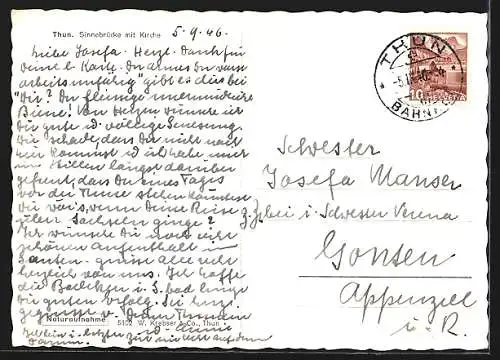 Thun. Sinnebrücke mit Kirche
5.9.46.
Liebe Josefa. Herzl. Dank für
Deine l. Karte. Du armes Du
"arbeitsunfähig" gibt es das bei
"Dir? Du fleissige unermüdliche
Biene! Von Herzen wünsche ich
Dir gute u. völlige Genesung.
Wie schade, dass Du nicht nach
kommst u. ich habe mich
im Stillen längst darüber
gefreut, dass Du eines Tages
vor der Türe stehen könntest
wenn Deine Reise
über Sachseln ginge?
Ich wünsche Dir noch recht
schönen Aufenthalt in
Gonten. grüsse alle recht
herzlich von uns. Ich hoffe
die l. bad bringe
Dir guten Erfolg. Sei herzl.
gegrüsst v. Deiner
Naturaufnahme 5102 W. Krebser & Co., Thun
THUN
-5.IX.46
BAHNHOF
10
HELVETIA
Schwester
Josefa Manser
z. Zt. bei Schwester Verena
Gonten
Appenzell
i. R.